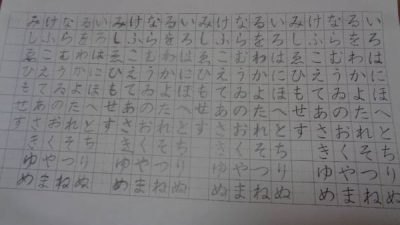 いろはにほへとちりぬ
るをわかよたれそつね
ならむうゐのおくやま
けふこえてあさきゆめ
みしゑひもせす
いろはにほへとちりぬ
るをわかよたれそつね
ならむうゐのおくやま
けふこえてあさきゆめ
みしゑひもせす
いろはにほへとちりぬ
るをわかよたれそつね
ならむうゐのおくやま
けふこえてあさきゆめ
みしゑひもせす
いろはにほへとちりぬ
るをわかよたれそつね
ならむうゐのおくやま
けふこえてあさきゆめ
みしゑひもせす